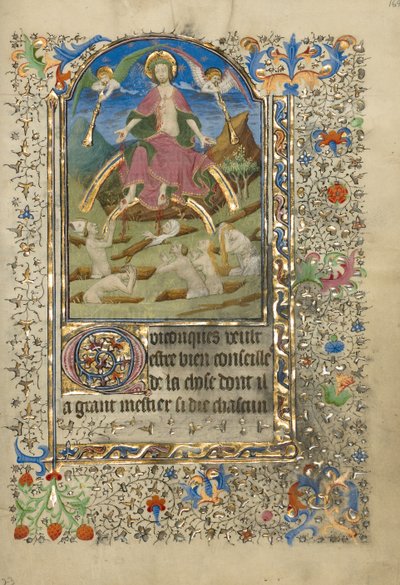 169
Quiconques veult
estre bien conseille
de la chose dont il
a grant mestier si die chascun